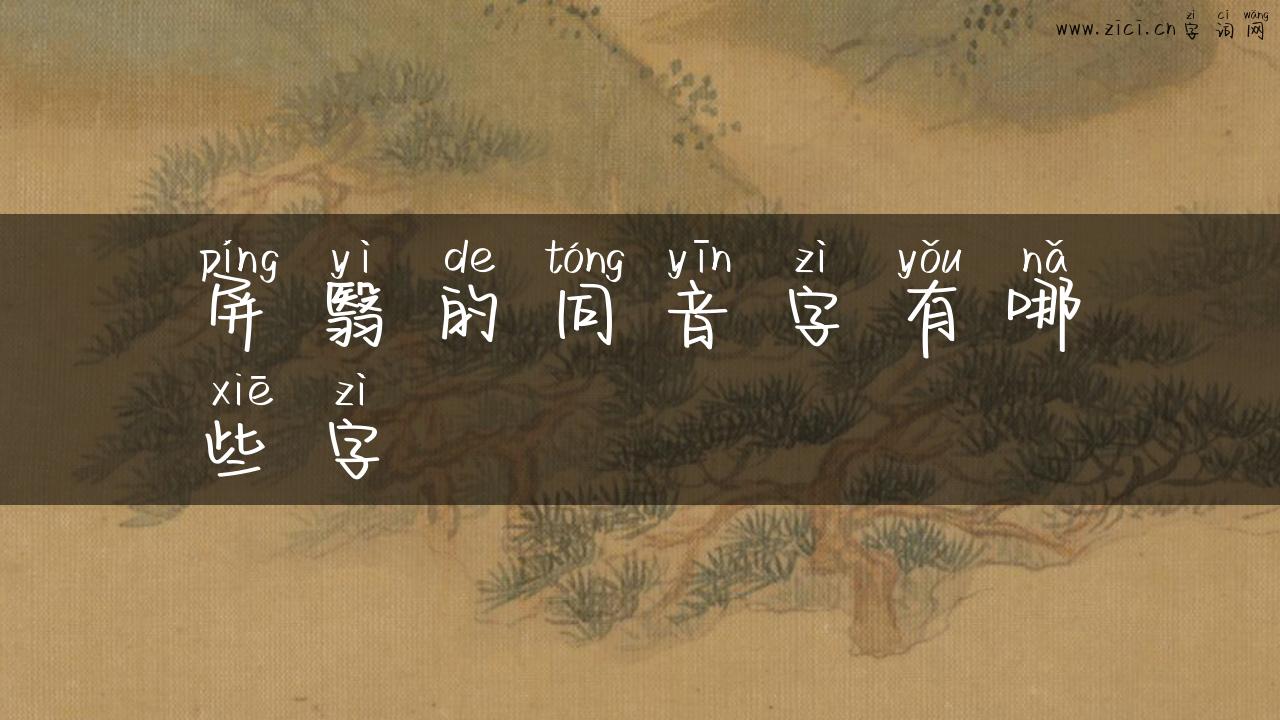 zì cí wǎng
www.zici.cn 字词网
píng yì de tóng yīn zì yǒu nǎ
屏翳的同音字有哪
xiē zì
些字